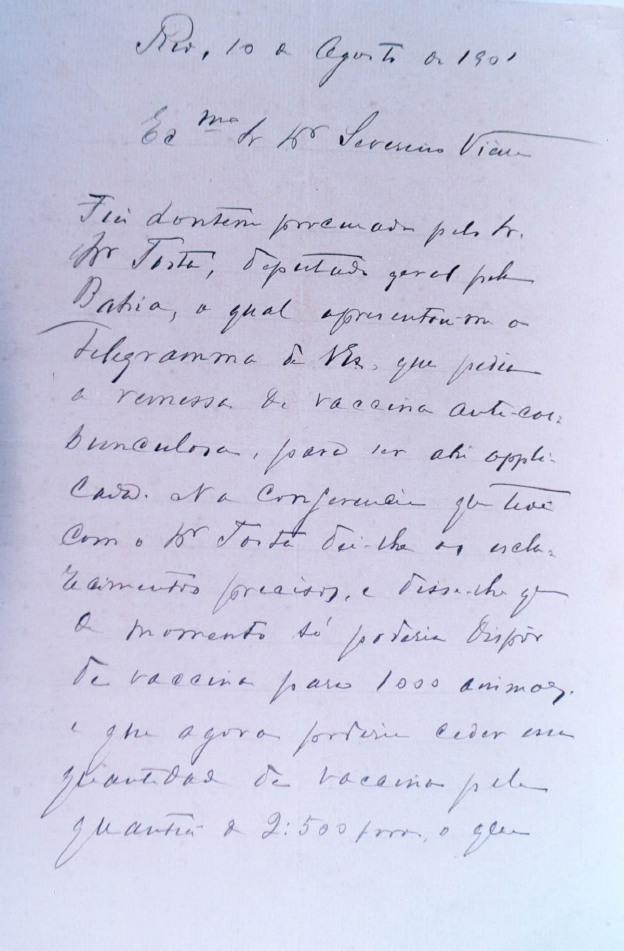 Rio, 10 de Agosto de 1901
Ex.mo Sr Dr Severino Vieira
Fui hontem procurado pelo Sr.
Dr Tosta, deputado geral pela
Bahia, o qual apresentou-me o
telegramma de VEx. que pedia
a remessa de vaccina anti-car-
bunculosa, para ser ahi appli-
cada. Na conferencia que tive
com o Dr Tosta dei-lhe os escla-
recimentos precisos, e disse-lhe que
de momento só poderia dispôr
de vaccina para 1000 animaes.
e que agora poderia ceder essa
quantidade de vaccina pela
quantia de 2:500, o que